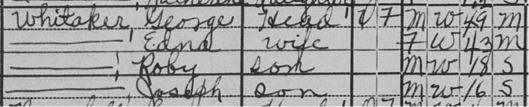 Whitaker, George Head 0 F M W 49 M
———, Edna wife F W 43 M
———, Roby son M W 18 S
———, Joseph son M W 16 S